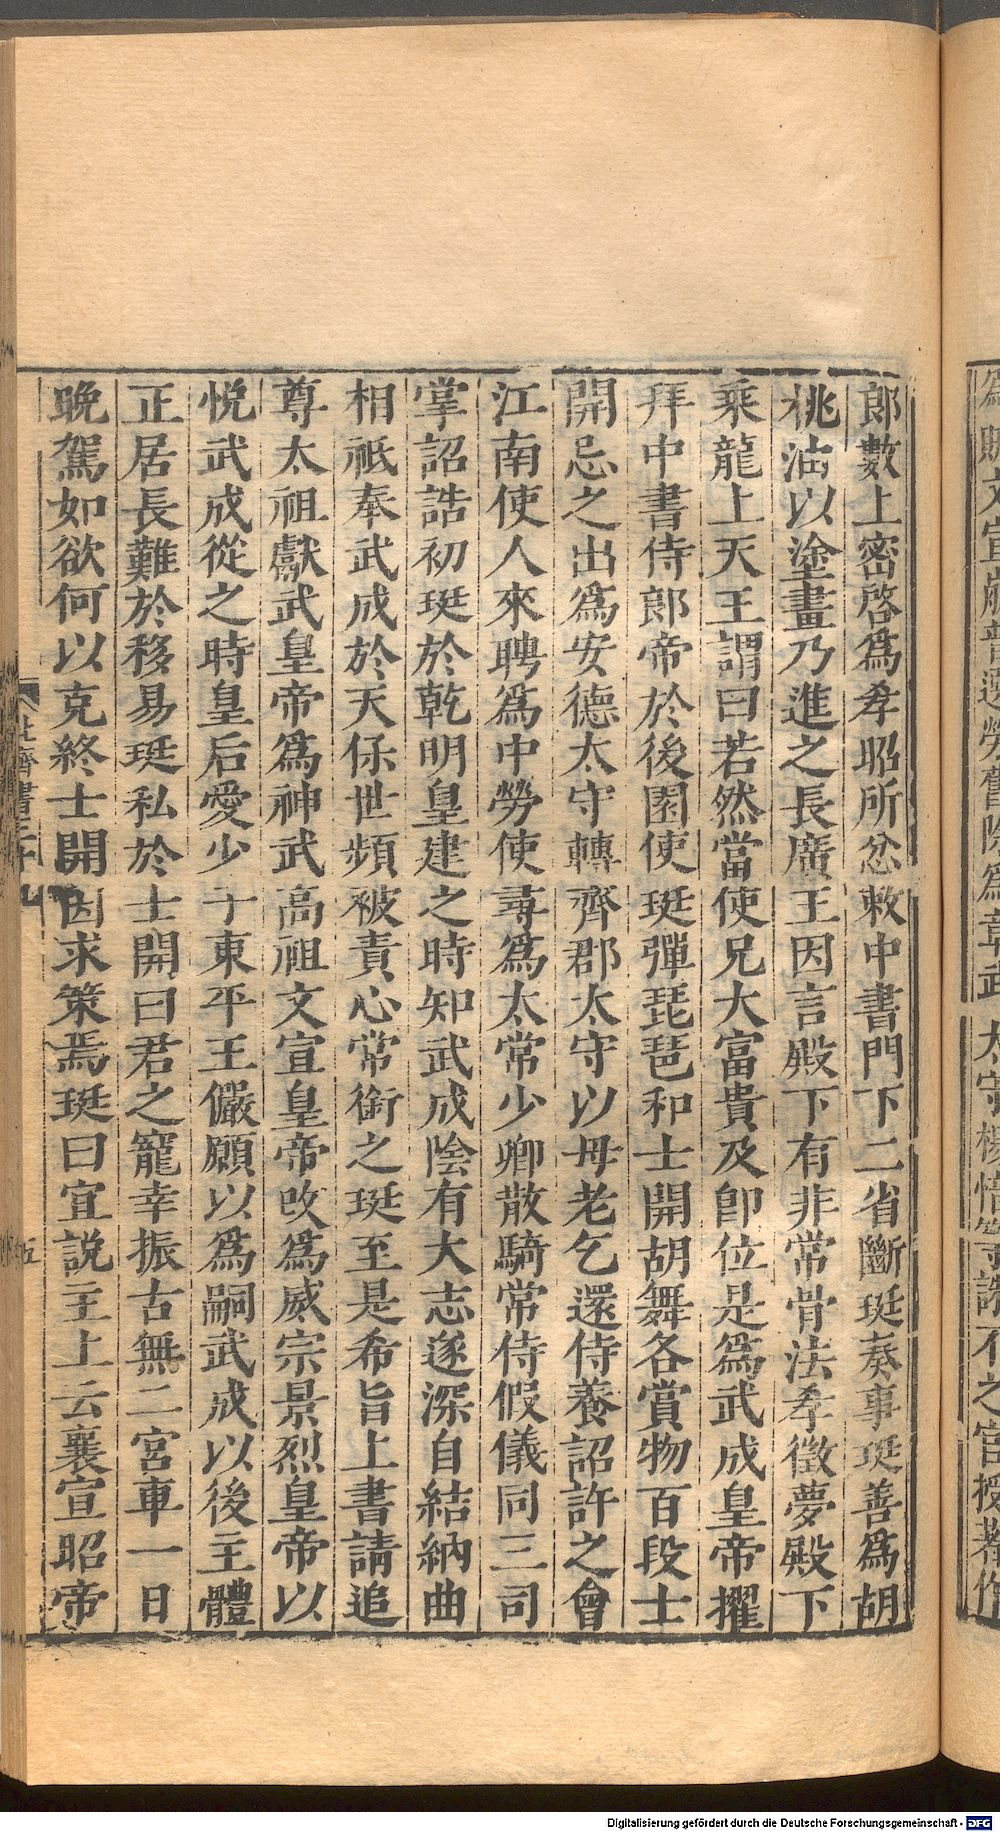 郎數上密啓爲孝昭所忿敕中書門下二省斷珽奏事珽善爲胡
桃油以塗畫乃進之長廣王因言殿下有非常骨法孝徵夢殿下
乘龍上天王謂曰若然當使兄大富貴及卽位是爲武成皇帝擢
拜中書侍郎帝於後園使珽彈琵琶和士開胡舞各賞物百段士
開忌之出爲安德太守轉齊郡太守以母老乞還侍養詔許之會
江南使人來聘爲中勞使尋爲太常少卿散騎常侍假儀同三司
掌詔誥初珽於乾明皇建之時知武成陰有大志遂深自結納曲
相祗奉武成於天保世頻被責心常銜之珽至是希旨上書請追
尊太祖獻武皇帝爲神武高祖文宣皇帝改爲威宗景烈皇帝以
悅武成從之時皇后愛少子東平王儼願以爲嗣武成以後主體
正居長難於移易珽私於士開曰君之寵幸振古無二宮車一日
晚駕如欲何以克終士開因求策焉珽曰宜說主上云襄宣昭帝
北齊書三十九
五
Digitalisierung gefördert durch die Deutsche Forschungsgemeinschaft - DFG